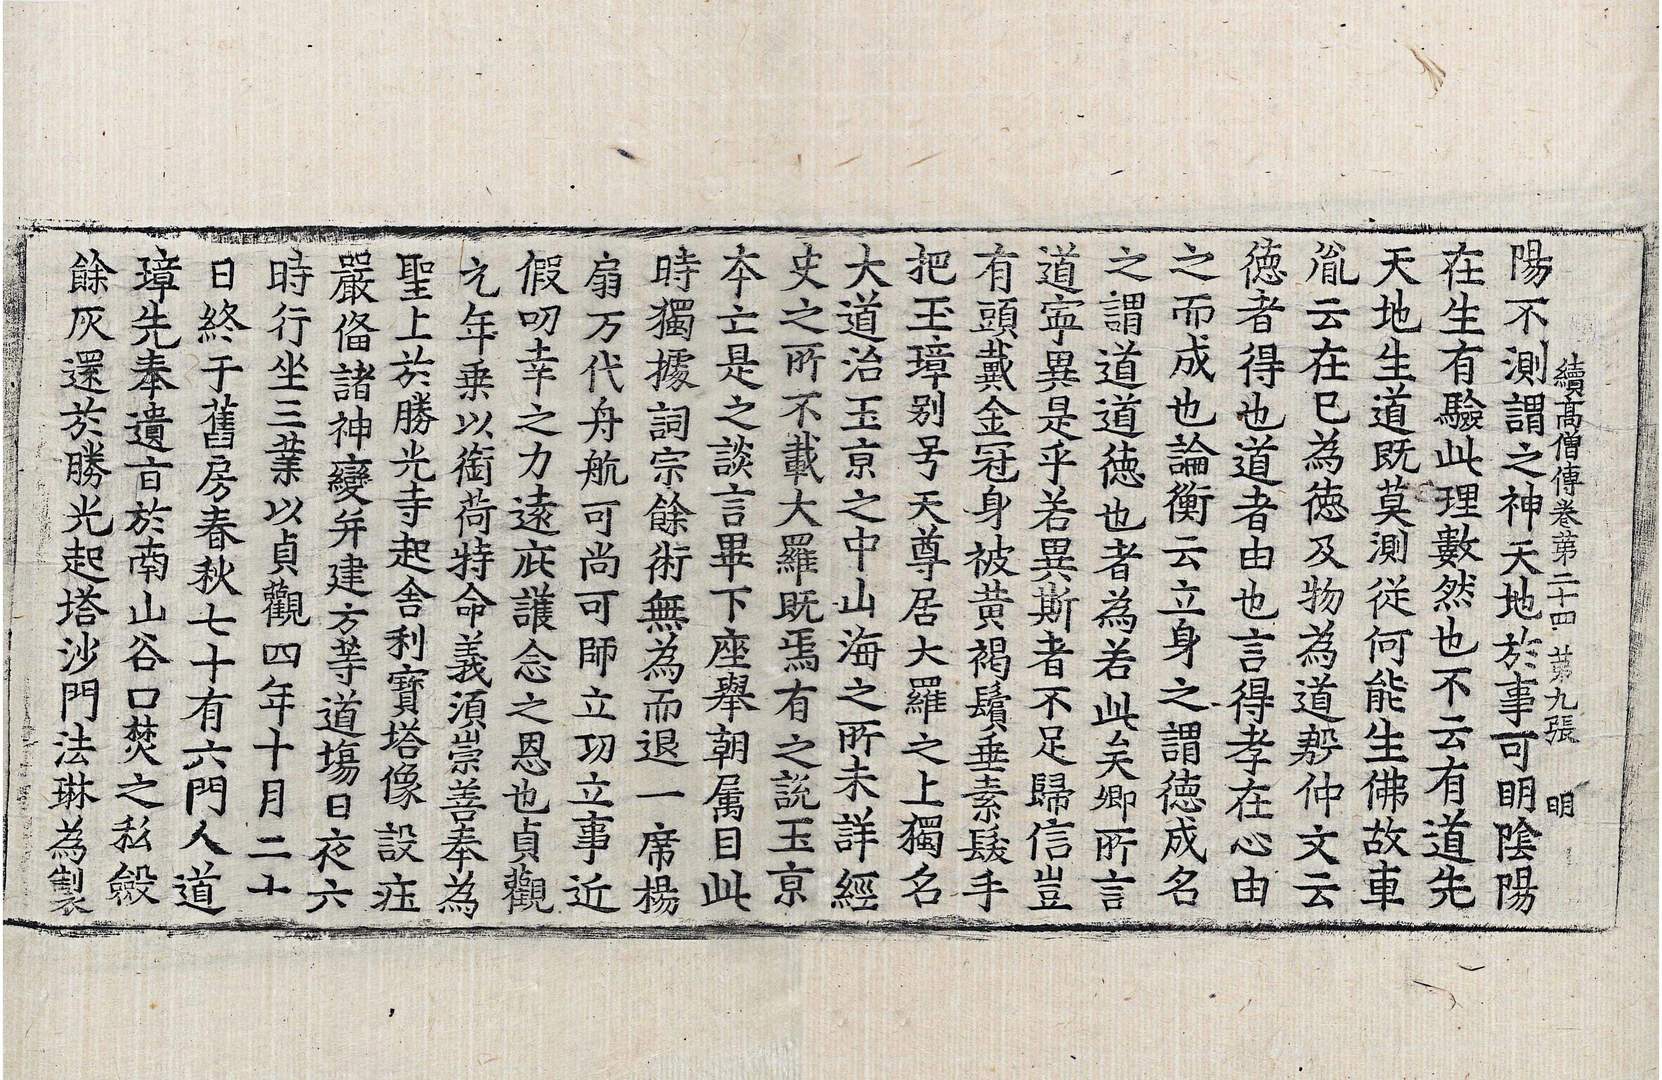 續高僧傳卷第二十四 第九張 明
陽不測謂之神天地於事可明陰陽
在生有驗此理數然也不云有道先
天地生道既莫測從何能生佛故車
胤云在己為德及物為道殷仲文云
德者得也道者由也言得孝在心由
之而成也論衡云立身之謂德成名
之謂道道德也者為若此矣卿所言
道寧異是乎若異斯者不足歸信豈
有頭戴金冠身被黄褐鬢垂素髮手
把玉璋别号天尊居大羅之上獨名
大道治玉京之中山海之所未詳經
史之所不載大羅既焉有之說玉京
本亡是之談言畢下座舉朝属目此
時獨據詞宗餘術無為而退一席楊
扇万代舟航可尚可師立功立事近
假叨幸之力遠庇護念之恩也貞觀
元年乗以銜荷特命義湏崇善奉為
聖上於勝光寺起舍利寳塔像設庄
嚴俻諸神變并建方等道塲日夜六
時行坐三業以貞觀四年十月二十
日終于舊房春秋七十有六門人道
璋先奉遺旨於南山谷口焚之私斂
餘灰還於勝光起塔沙門法琳為製